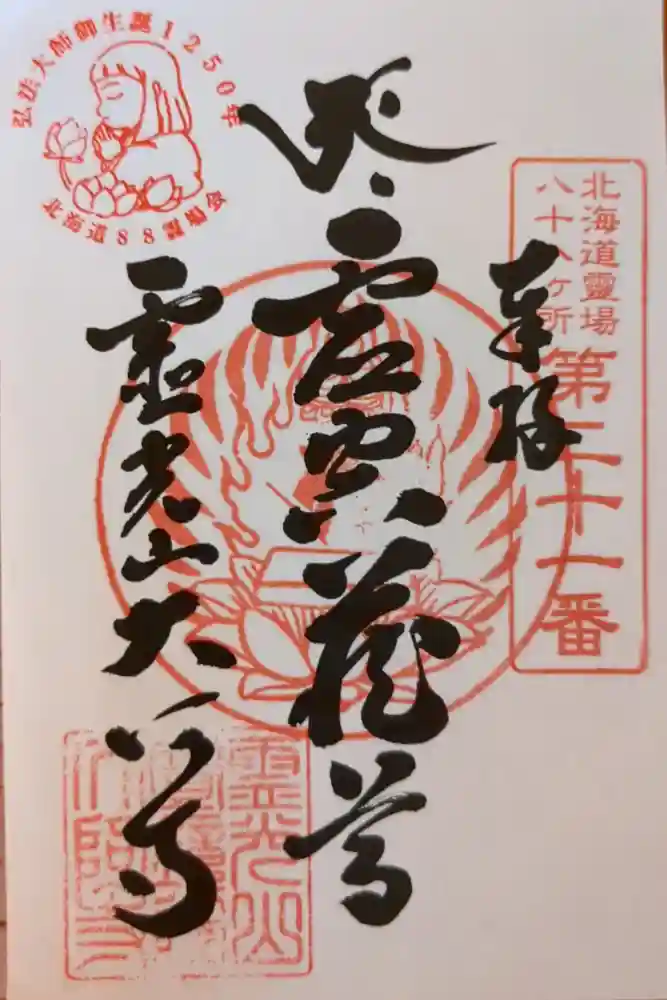 弘法大師御生誕1250年
北海道88霊場会
北海道靈場
八十八ヶ所
第 十一番
奉拝
虚空蔵尊
霊光山大師寺